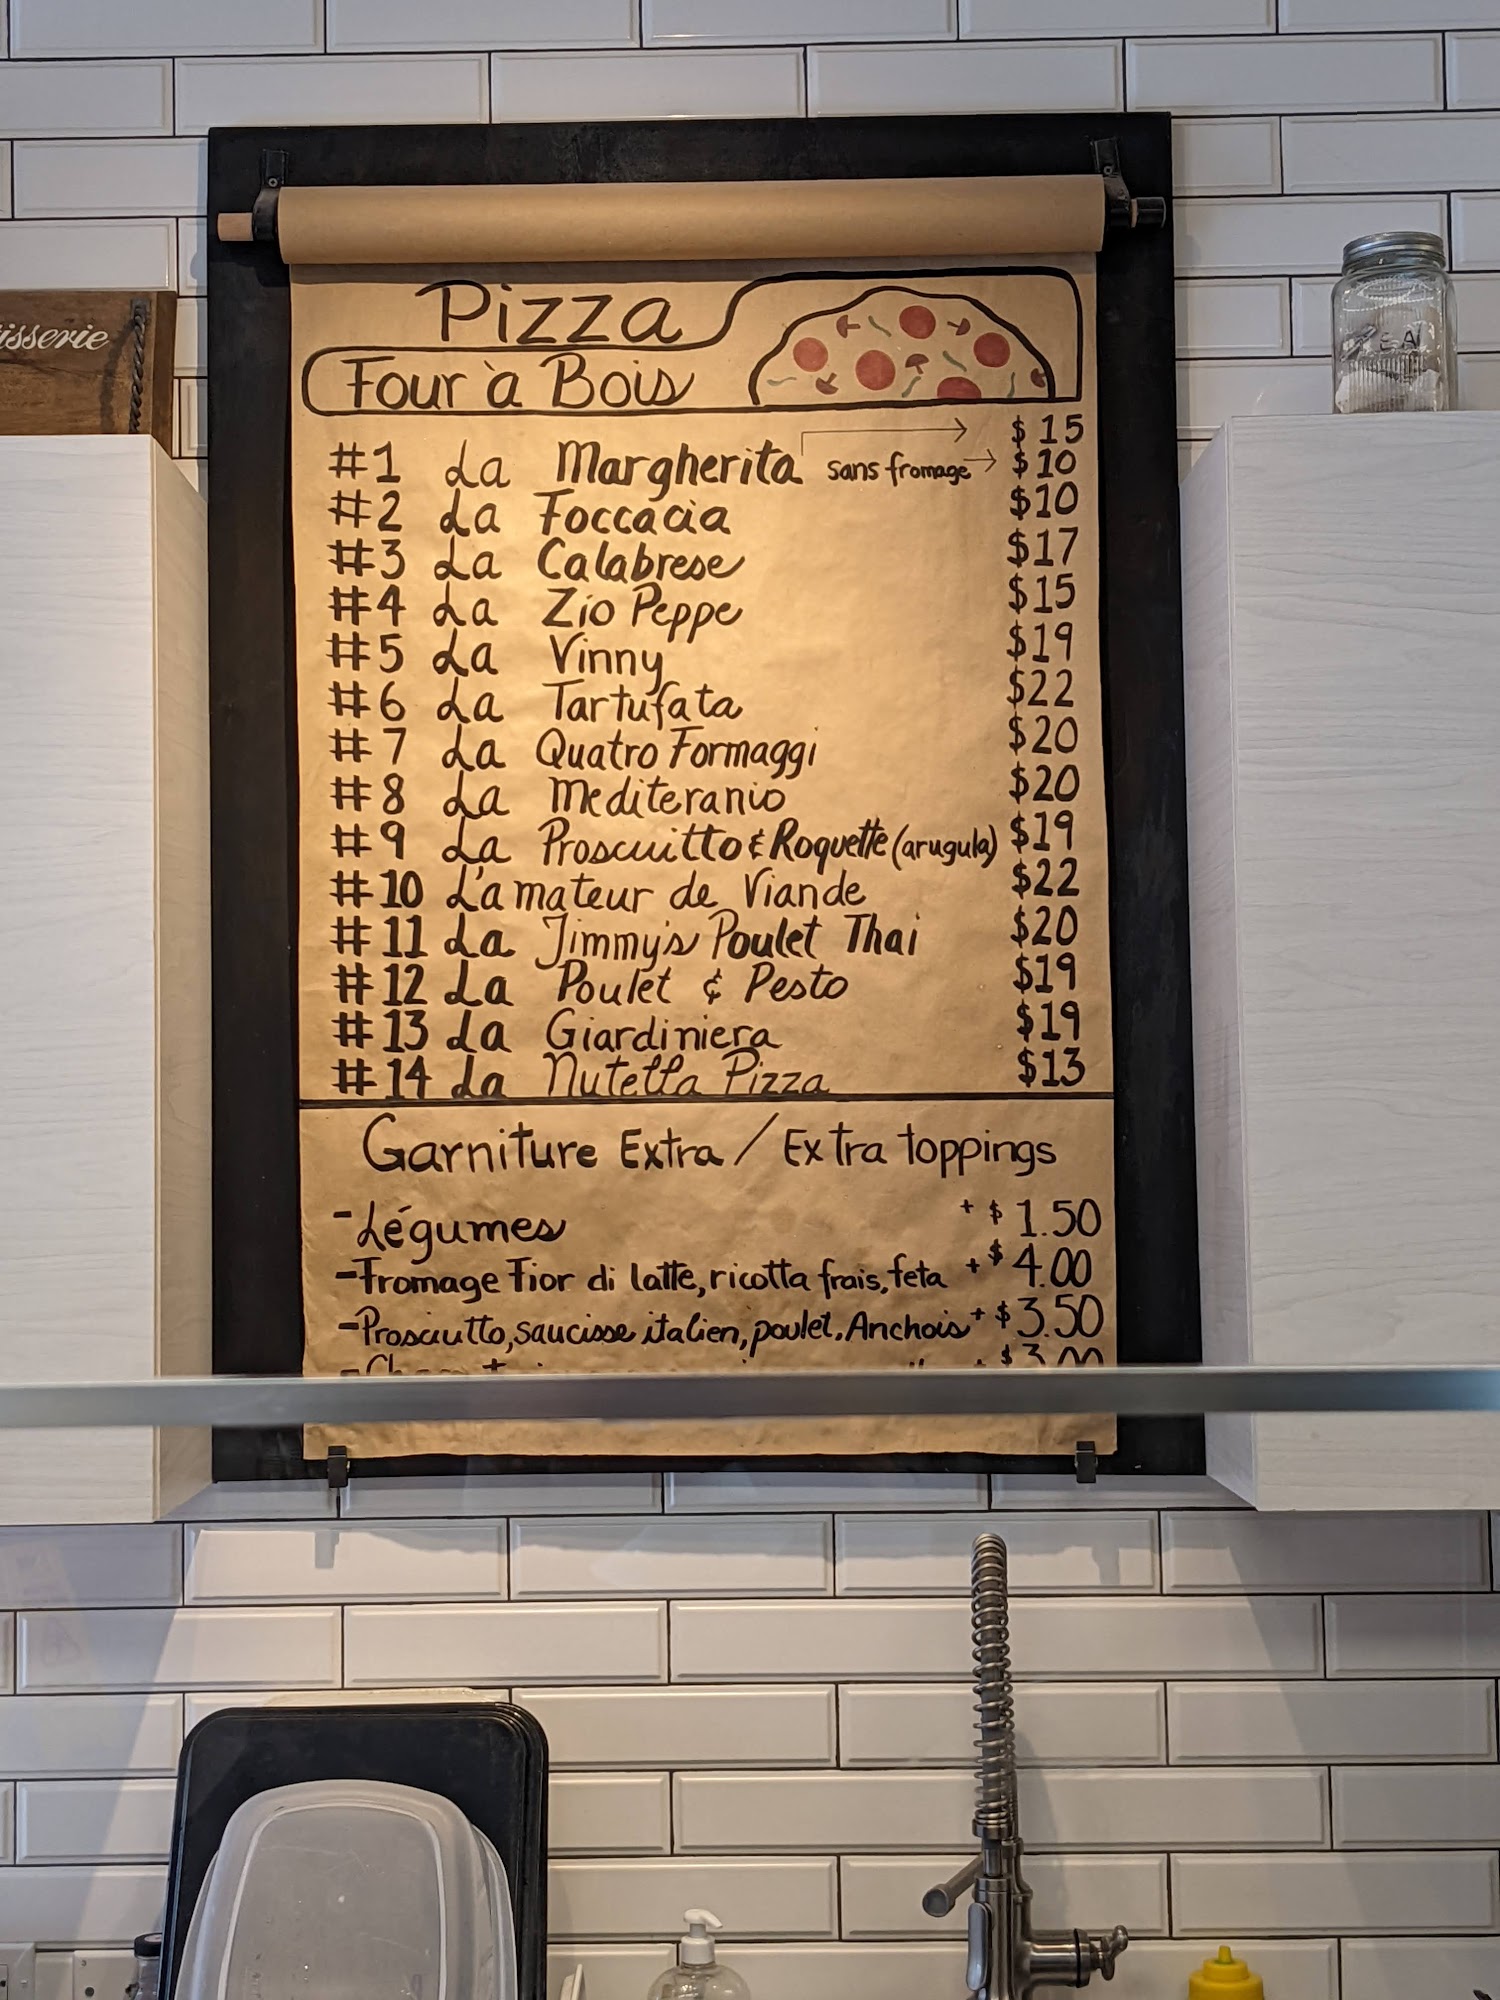 isserie
Pizza
Four à Bois
#1 La Margherita $15
sans fromage $10
#2 La Foccacia $10
#3 La Calabrese $17
#4 La Zio Peppe $15
#5 La Vinny $19
#6 La Tartufata $22
#7 La Quatro Formaggi $20
#8 La Mediteranio $20
#9 La Proscuitto & Roquette (arugula) $19
#10 L'amateur de Viande $22
#11 La Jimmy's Poulet Thai $20
#12 La Poulet & Pesto $19
#13 La Giardiniera $19
#14 La Nutella Pizza $13
Garniture Extra / Extra toppings
-Légumes +$1.50
-Fromage Fior di latte, ricotta frais, feta +$4.00
-Prosciutto, saucisse italien, poulet, Anchois +$3.50
$3.00